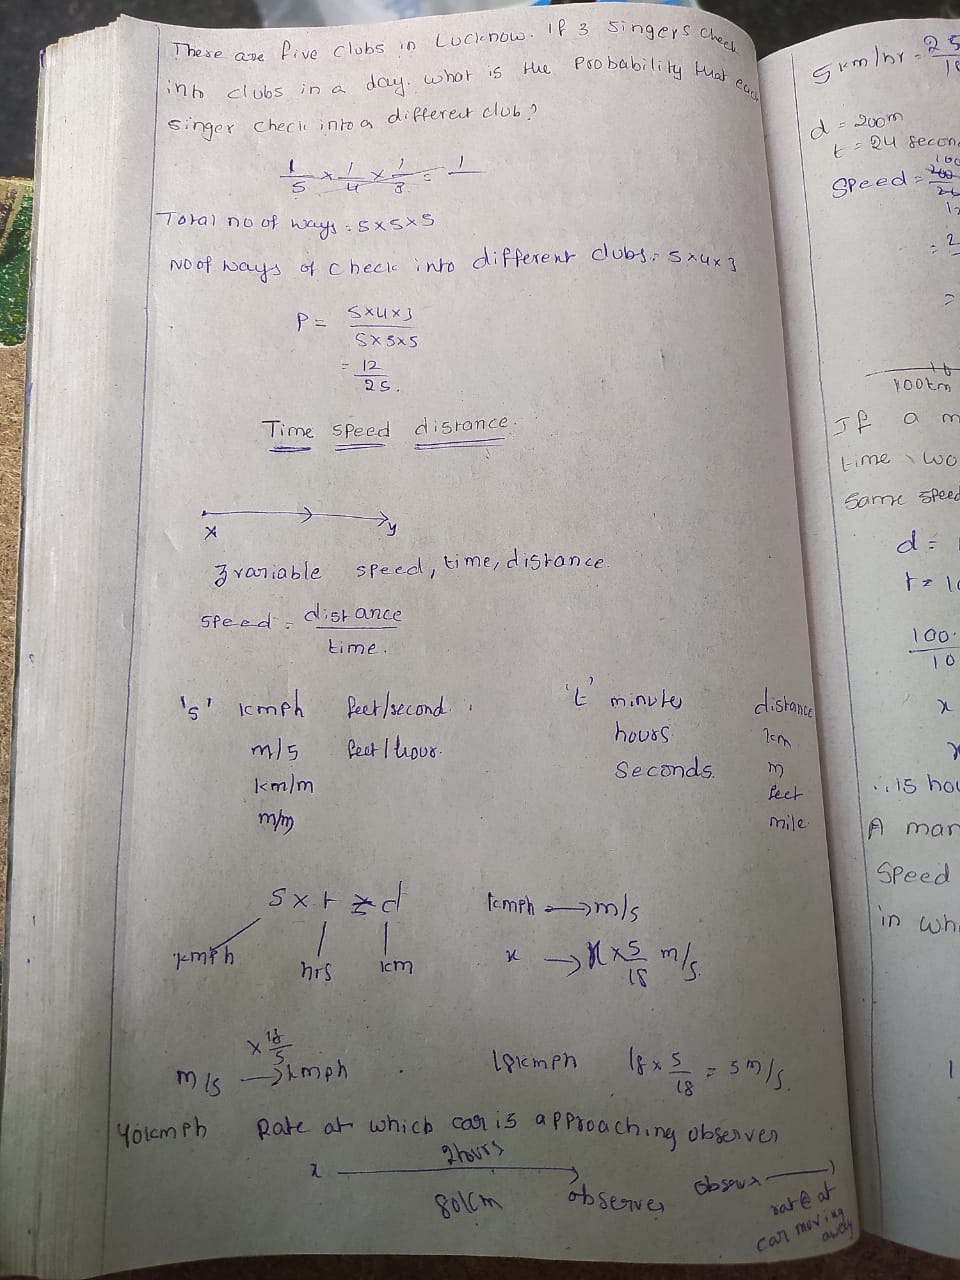 There are five clubs in Lucknow. If 3 singers check
into clubs in a day. what is the probability that each
singer check into a different club?
1/5 × 1/4 × 1/3 = 1
Total no of ways = 5×5×5
No of ways of check into different clubs = 5×4×3
P = 5×4×3
5×5×5
= 12
25.
Time speed distance.
x y
3 variable speed, time, distance.
speed = distance
time.
's' kmph feet/second. 't' minutes distance
m/s feet/hour. hours km
km/m seconds. m
feet
m/m mile
s × t = d kmph → m/s
kmph hrs km x → x × 5/18 m/s.
× 18/5
m/s → kmph 18kmph 18 × 5/18 = 5 m/s.
40kmph Rate at which car is approaching observer
2hours
x observer
80km
rate at
car moving
away
5 km/hr = 25
18
d = 200m
t = 24
Speed =
100km
If a
time
same speed
d =
t = 10
100
10
x
∴ 15
A man
speed
in